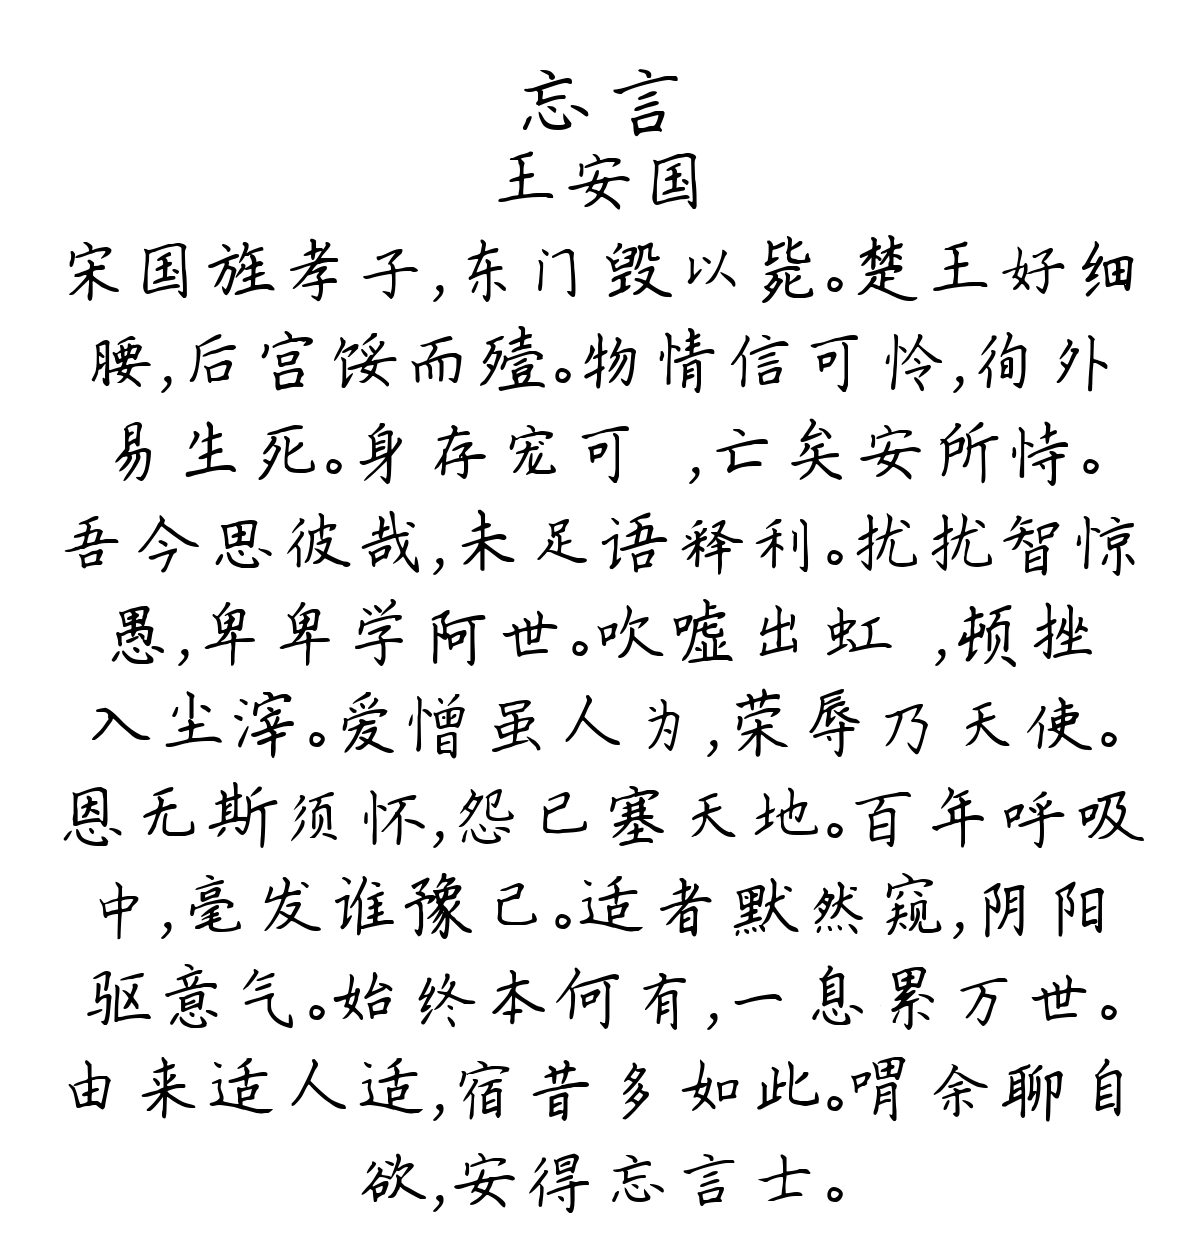 忘言
王安国
宋国旌孝子,东门毁以毙。楚王好细
腰,后宫馁而殪。物情信可怜,徇外
易生死。身存宠可 ,亡矣安所恃。
吾今思彼哉,未足语释利。扰扰智惊
愚,卑卑学阿世。吹嘘出虹 ,顿挫
入尘滓。爱憎虽人为,荣辱乃天使。
恩无斯须怀,怨已塞天地。百年呼吸
中,毫发谁豫己。适者默然窥,阴阳
驱意气。始终本何有,一息累万世。
由来适人适,宿昔多如此。喟余聊自
欲,安得忘言士。